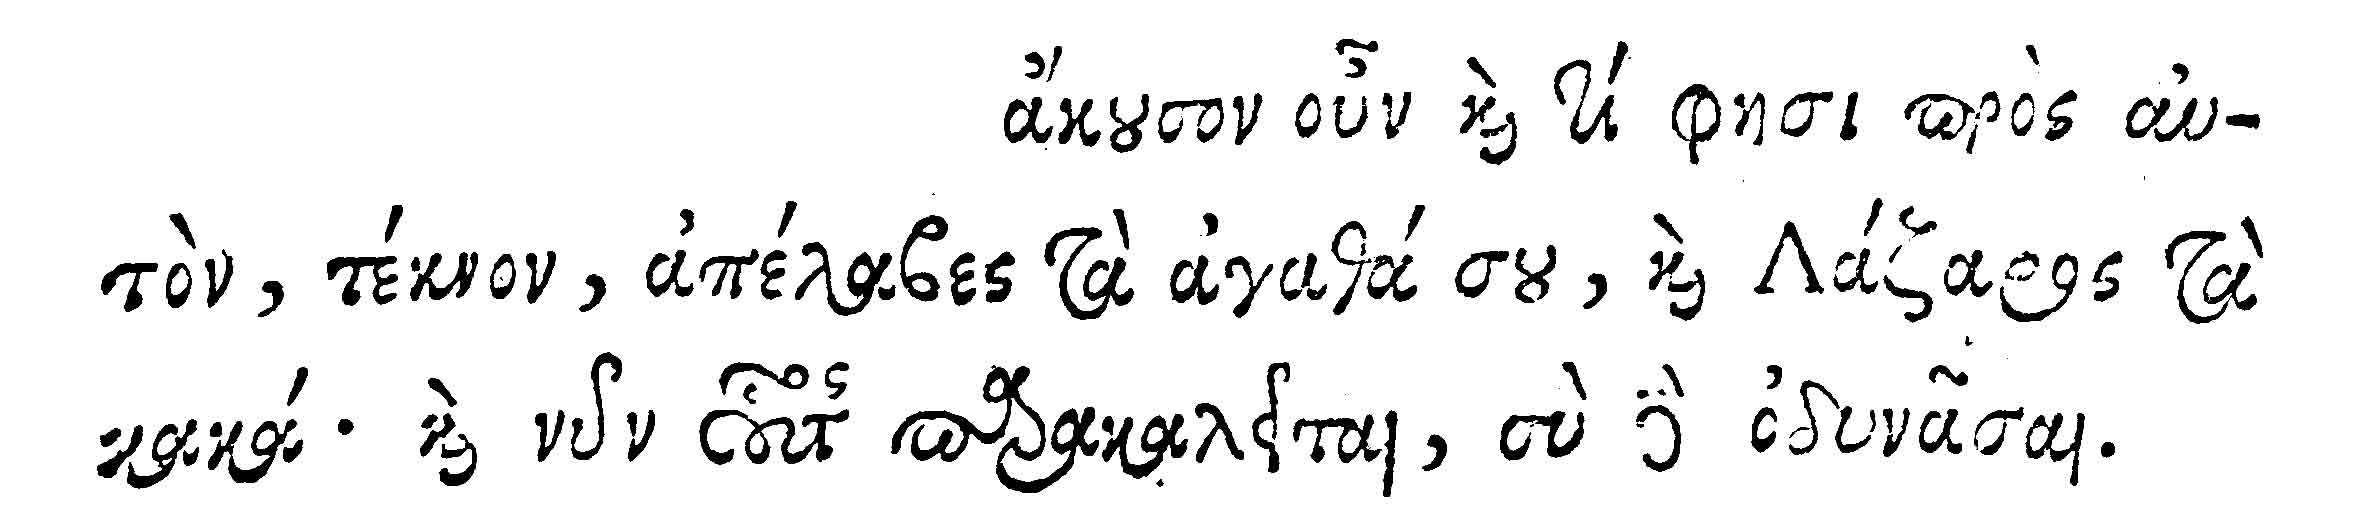 ἄκουσον οὖν καὶ τί φησι πρὸς αὐ-
τὸν, τέκνον, ἀπέλαβες τὰ ἀγαθά σου, καὶ Λάζαρος τὰ
κακά· καὶ νῦν οὗτος παρακαλεῖται, σὺ δὲ ὀδυνᾶσαι.